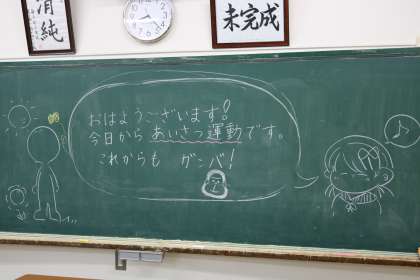 清
純
未完成
おはようございます!
今日から あいさつ運動です。
これからも ガンバ!